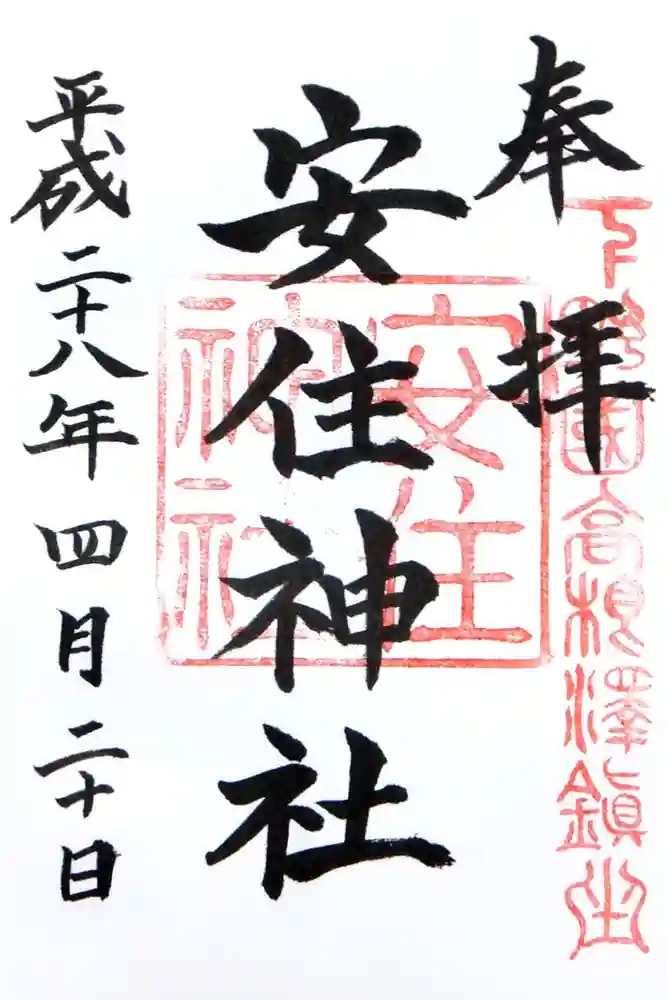 奉拝
下野国高根澤鎮坐
安住神社
安住
神社
平成二十八年四月二十日